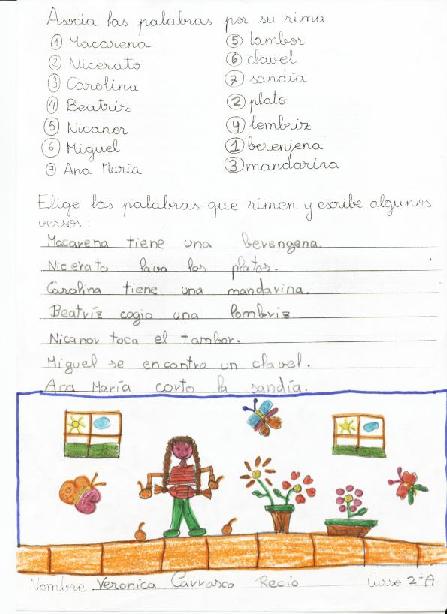 Asocia las palabras por su rima
① Macarena ⑤ tambor
② Nicerato ⑥ clavel
③ Carolina ⑦ sandía
④ Beatriz ② plato
⑤ Nicanor ④ lombriz
⑥ Miguel ① berenjena
⑦ Ana María ③ mandarina
Elige las palabras que rimen y escribe algunos
versos:
Macarena tiene una berengena.
Nicerato lava los platos.
Carolina tiene una mandarina.
Beatriz cogio una lombriz
Nicanor toca el tambor.
Miguel se encontro un clavel.
Ana María corto la sandía.
Nombre Veronica Carrasco Recio Curso 2º A